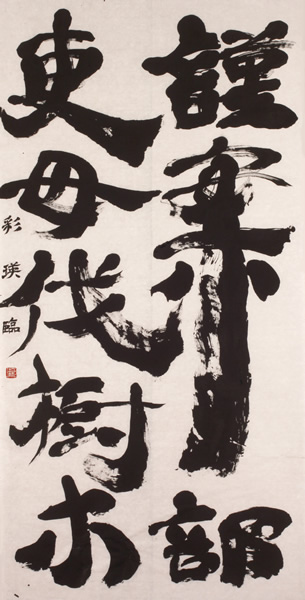 謹案部
吏毋伐樹木
彩瑛臨